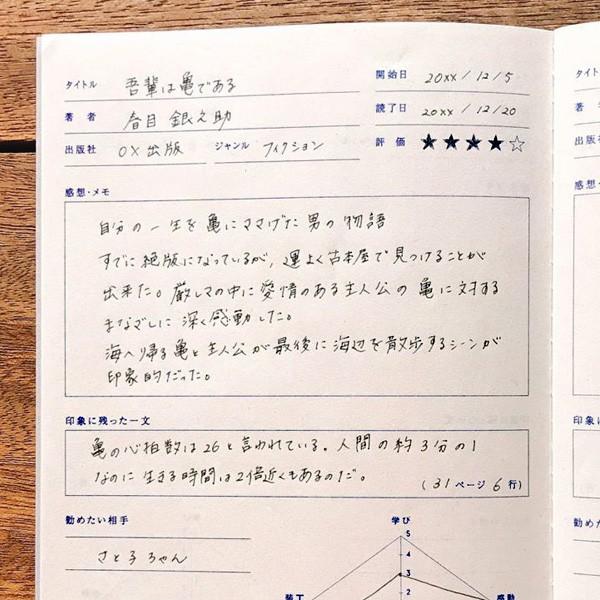 タイトル 吾輩は亀である
開始日 20xx / 12 / 5
著者 春目 銀之助
読了日 20xx / 12 / 20
出版社 OX出版 ジャンル フィクション
評価 ★★★★☆
感想・メモ
自分の一生を亀にささげた男の物語
すでに絶版になっているが、運よく古本屋で見つけることが
出来た。厳しさの中に愛情のある主人公の亀に対する
まなざしに深く感動した。
海へ帰る亀と主人公が最後に海辺を散歩するシーンが
印象的だった。
印象に残った一文
亀の心拍数は26と言われている。人間の約3分の1
なのに生きる時間は2倍近くもあるのだ。
(31ページ 6行)
勧めたい相手
さと子ちゃん
学び
5
4
3
2
装丁 感動